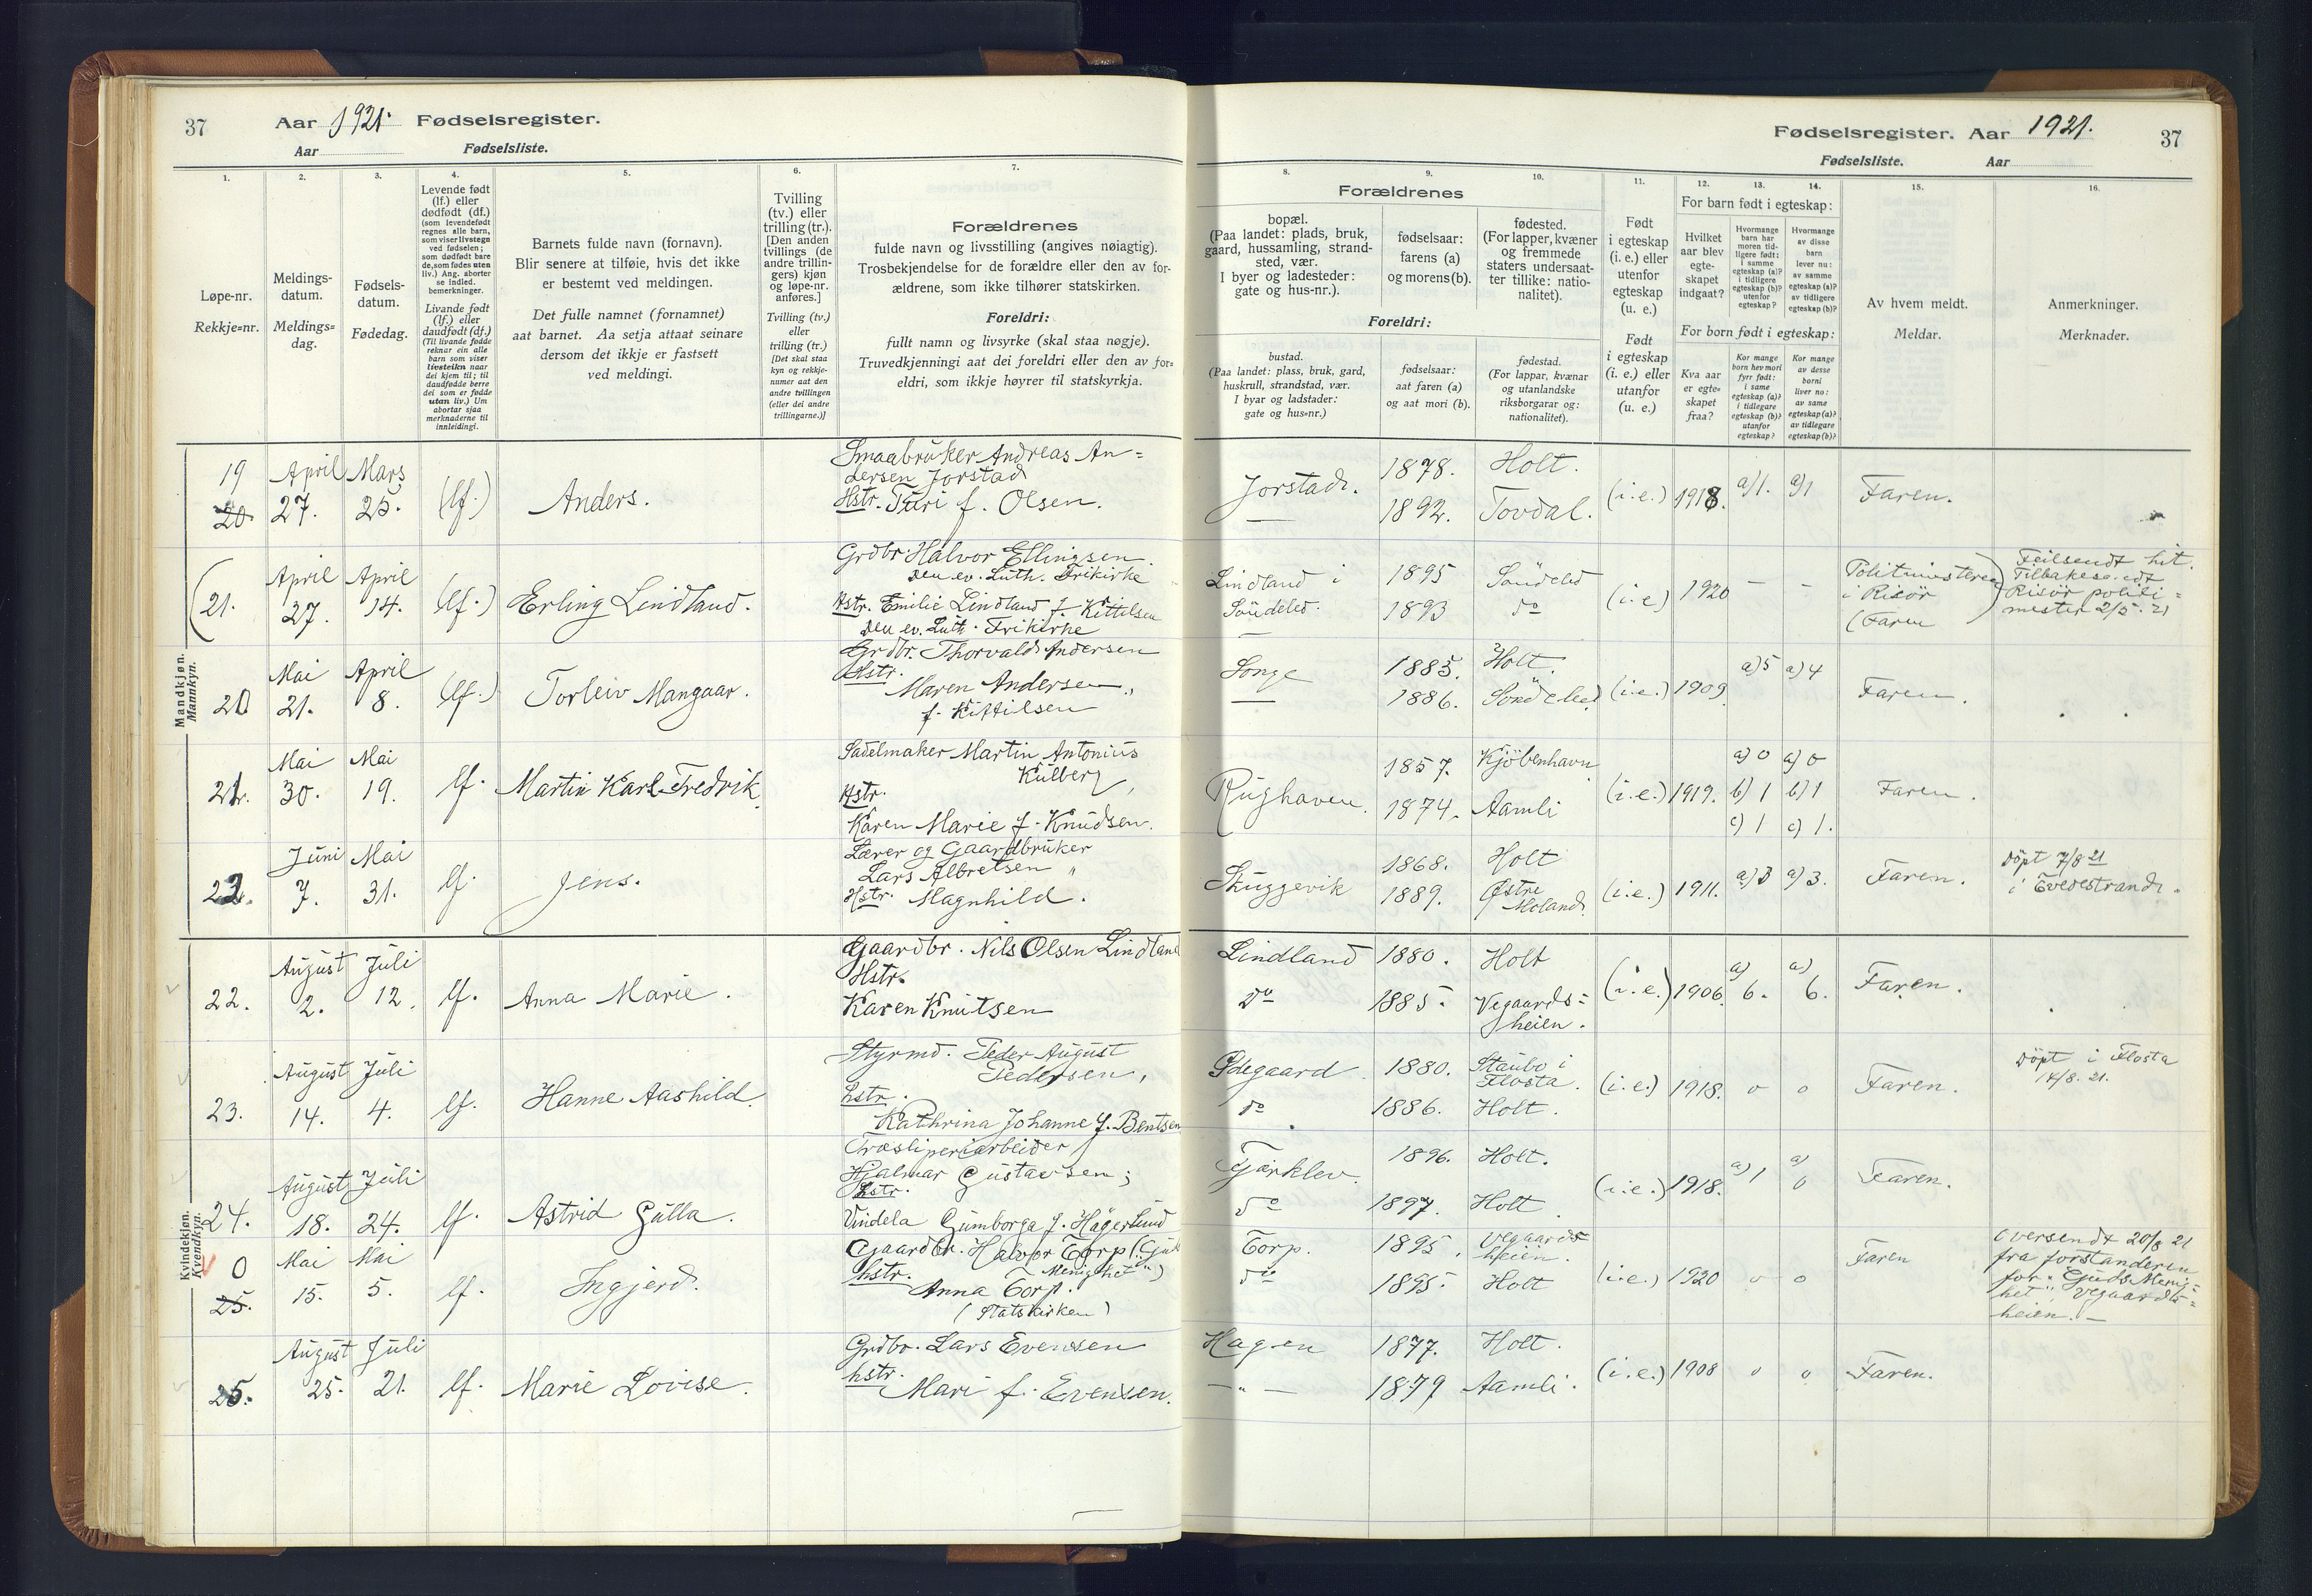 37
Aar 1921. Fødselsregister.
Aar
Fødselsliste.
1.
2.
3.
4.
5.
6.
7.
Løpe-nr.
Rekkje=nr.
Meldings-
datum.
Meldings=
dag.
Fødsels-
datum.
Fødedag.
Levende født
(lf.) eller
dødfødt (df.)
(som levendefødt
regnes alle barn,
som viser livstegn
ved fødselen;
som dødfødt bare
de, som fødes uten
liv.) Ang. aborter
se indled.
bemerkninger.
Livande født
(lf.) eller
daudfødt (df.)
(Til livande fødde
reknar ein alle
barn som viser
livsteikn naar
dei kjem til; til
daudfødde berre
dei som er fødde
utan liv.) Um
abortar sjaa
merknaderne til
innleidingi.
Barnets fulde navn (fornavn).
Blir senere at tilføie, hvis det ikke
er bestemt ved meldingen.
Det fulle namnet (fornamnet)
aat barnet. Aa setja attaat seinare
dersom det ikkje er fastsett
ved meldingi.
Tvilling
(tv.) eller
trilling (tr.).
[Den anden
tvillings (de
andre trillin-
gers) kjøn
og løpe-nr.
anføres.]
Tvilling (tv.)
eller
trilling (tr.)
[Det skal staa
kyn og rekkje-
numer aat den
andre tvillingen
(eller dei andre
trillingarne.)]
Forældrenes
fulde navn og livsstilling (angives nøiagtig).
Trosbekjendelse for de forældre eller den av for-
ældrene, som ikke tilhører statskirken.
Foreldri:
fullt namn og livsyrke (skal staa nøgje).
Truvedkjenningi aat dei foreldri eller den av for=
eldri, som ikkje høyrer til statskyrkja.
Mandkjøn.
Mannkyn.
19
20.
April
27.
Mars
25.
(lf.)
Anders.
Smaabruker Andreas An=
dersen Jorstad
Hstr. Turi f. Olsen.
(21.
April
27.
April
14.
(lf.)
Erling Lindland.
Grdbr. Halvor Ellingsen
Den ev. Luth. Frikirke
Hstr. Emilie Lindland f. Kittelsen
Den ev. Luth. Frikirke
20
Mai
21.
April
8.
(lf.)
Torleiv Mangaar.
Grdbr. Thorvald Andersen
Hstr.
Maren Andersen,
f. Kittilsen
21.
Mai
30.
Mai
19.
lf.
Martin Karl Fredrik.
Sadelmaker Martin Antonius
Kulberg,
Hstr.
Karen Marie f. Knudsen.
22.
Juni
7.
Mai
31.
lf.
Jens.
Lærer og Gaardbruker
Lars Albretsen "
Hstr. Magnhild.
Kvindekjøn.
Kvendkyn.
22.
August
2.
Juli
12.
lf.
Anna Marie.
Gaardbr. Nils Olsen Lindland
Hstr.
Karen Knutsen
23.
August
14.
Juli
4.
lf.
Hanne Aashild.
Styrmd. Peder August
Pedersen,
hstr.
Kathrina Johanne f. Bentsen
24.
August
18.
Juli
24.
lf.
Astrid Gulla.
Træsliperiarbeider
Hjalmar Gustavsen;
hstr.
Vindela Gumborga f. Hägerlund
0
25.
Mai
15.
Mai
5.
lf.
Ingjerd.
Gaardbr. Halvor Torp ("Guds
Menighet")
hstr.
Anna Torp.
(Statskirken)
25.
August
25.
Juli
21.
lf.
Marie Lovise.
Grdbr. Lars Evensen
hstr.
Mari f. Evensen.
Fødselsregister. Aar 1921.
37
Fødselsliste.
Aar
8.
9.
10.
11.
12.
13.
14.
15.
16.
Forældrenes
bopæl.
(Paa landet: plads, bruk,
gaard, hussamling, strand-
sted, vær.
I byer og ladesteder:
gate og hus-nr.).
fødselsaar:
farens (a)
og morens (b).
fødested.
(For lapper, kvæner
og fremmede
staters undersaat-
ter tillike: natio-
nalitet).
Foreldri:
bustad.
(Paa landet: plass, bruk, gard,
huskrull, strandstad, vær.
I byar og ladstader:
gate og hus=nr.)
fødselsaar:
aat faren (a)
og aat mori (b).
fødestad.
(For lappar, kvænar
og utanlandske
riksborgarar og:
nationalitet).
Født
i egteskap
(i. e.) eller
utenfor
egteskap
(u. e.)
Født
i egteskap
(i. e.) eller
utanfor
egteskap
(u. e.)
For barn født i egteskap:
Hvilket
aar blev
egte-
skapet
indgaat?
Hvormange
barn har
moren tid-
ligere født:
i samme
egteskap (a)?
i tidligere
egteskap (b)?
utenfor
egteskap?
Hvormange
av disse
barn
lever nu:
av samme
egteskap (a)?
av tidligere
egteskap (b)?
For born født i egteskap:
Kva aar
er egte=
skapet
fraa?
Kor mange
born hev mori
fyrr født:
i same
egteskap (a)?
i tidlegare
egteskap (b)?
utanfor
egteskap?
Kor mange
av desse
borni
liver no:
av same
egteskap (a)?
av tidlegare
egteskap (b)?
Av hvem meldt.
Meldar.
Anmerkninger.
Merknader.
Jorstad.
1878.
1892.
Holt.
Tovdal.
(i.e.)
1918.
a) 1.
a) 1
Faren.
Lindland i
Söndeled.
1895
1893
Söndeled
do
(i.e)
1920
–
–
Politimesteren
i Risör
(Faren
Feilsendt hit.
Tilbakesendt
Risör politi=
mester 2/5. 21
Songe
1883.
1886.
Holt.
Söndeled
(i.e.)
1909.
a) 5
a) 4
Faren.
Rughaven.
1857.
1874.
Kjöbenhavn
Aamli
(i.e.)
1919.
a) 0
b) 1
c) 1
a) 0
b) 1
c) 1.
Faren.
Skuggevik
1868.
1889.
Holt
Østre
Moland.
(i.e.)
1911.
a) 3
a) 3.
Faren.
Döpt 7/8 21
i Tvedestrand.
Lindland
do
1880.
1885.
Holt
Vegaards=
heien.
(i.e.)
1906.
a)
6.
a)
6.
Faren.
Ødegaard
do
1880.
1886.
Staubo i
Flosta.
Holt.
(i.e.)
1918.
0
0
Faren.
Döpt i Flosta
14/8. 21.
Fjärklev.
do
1896.
1897.
Holt.
Holt.
(i.e.)
1918.
a) 1
a)
0
Faren.
Torp.
do
1895.
1895.
Vegaards
heien.
Holt
(i.e.)
1920
0
0
Faren
Oversendt 20/8 21
fra forstanderen
for "Guds Menig=
het", Vegaards=
heien. –
Hagen
– " –
1877.
1879
Holt.
Aamli.
(i.e.)
1908
0
0
Faren.